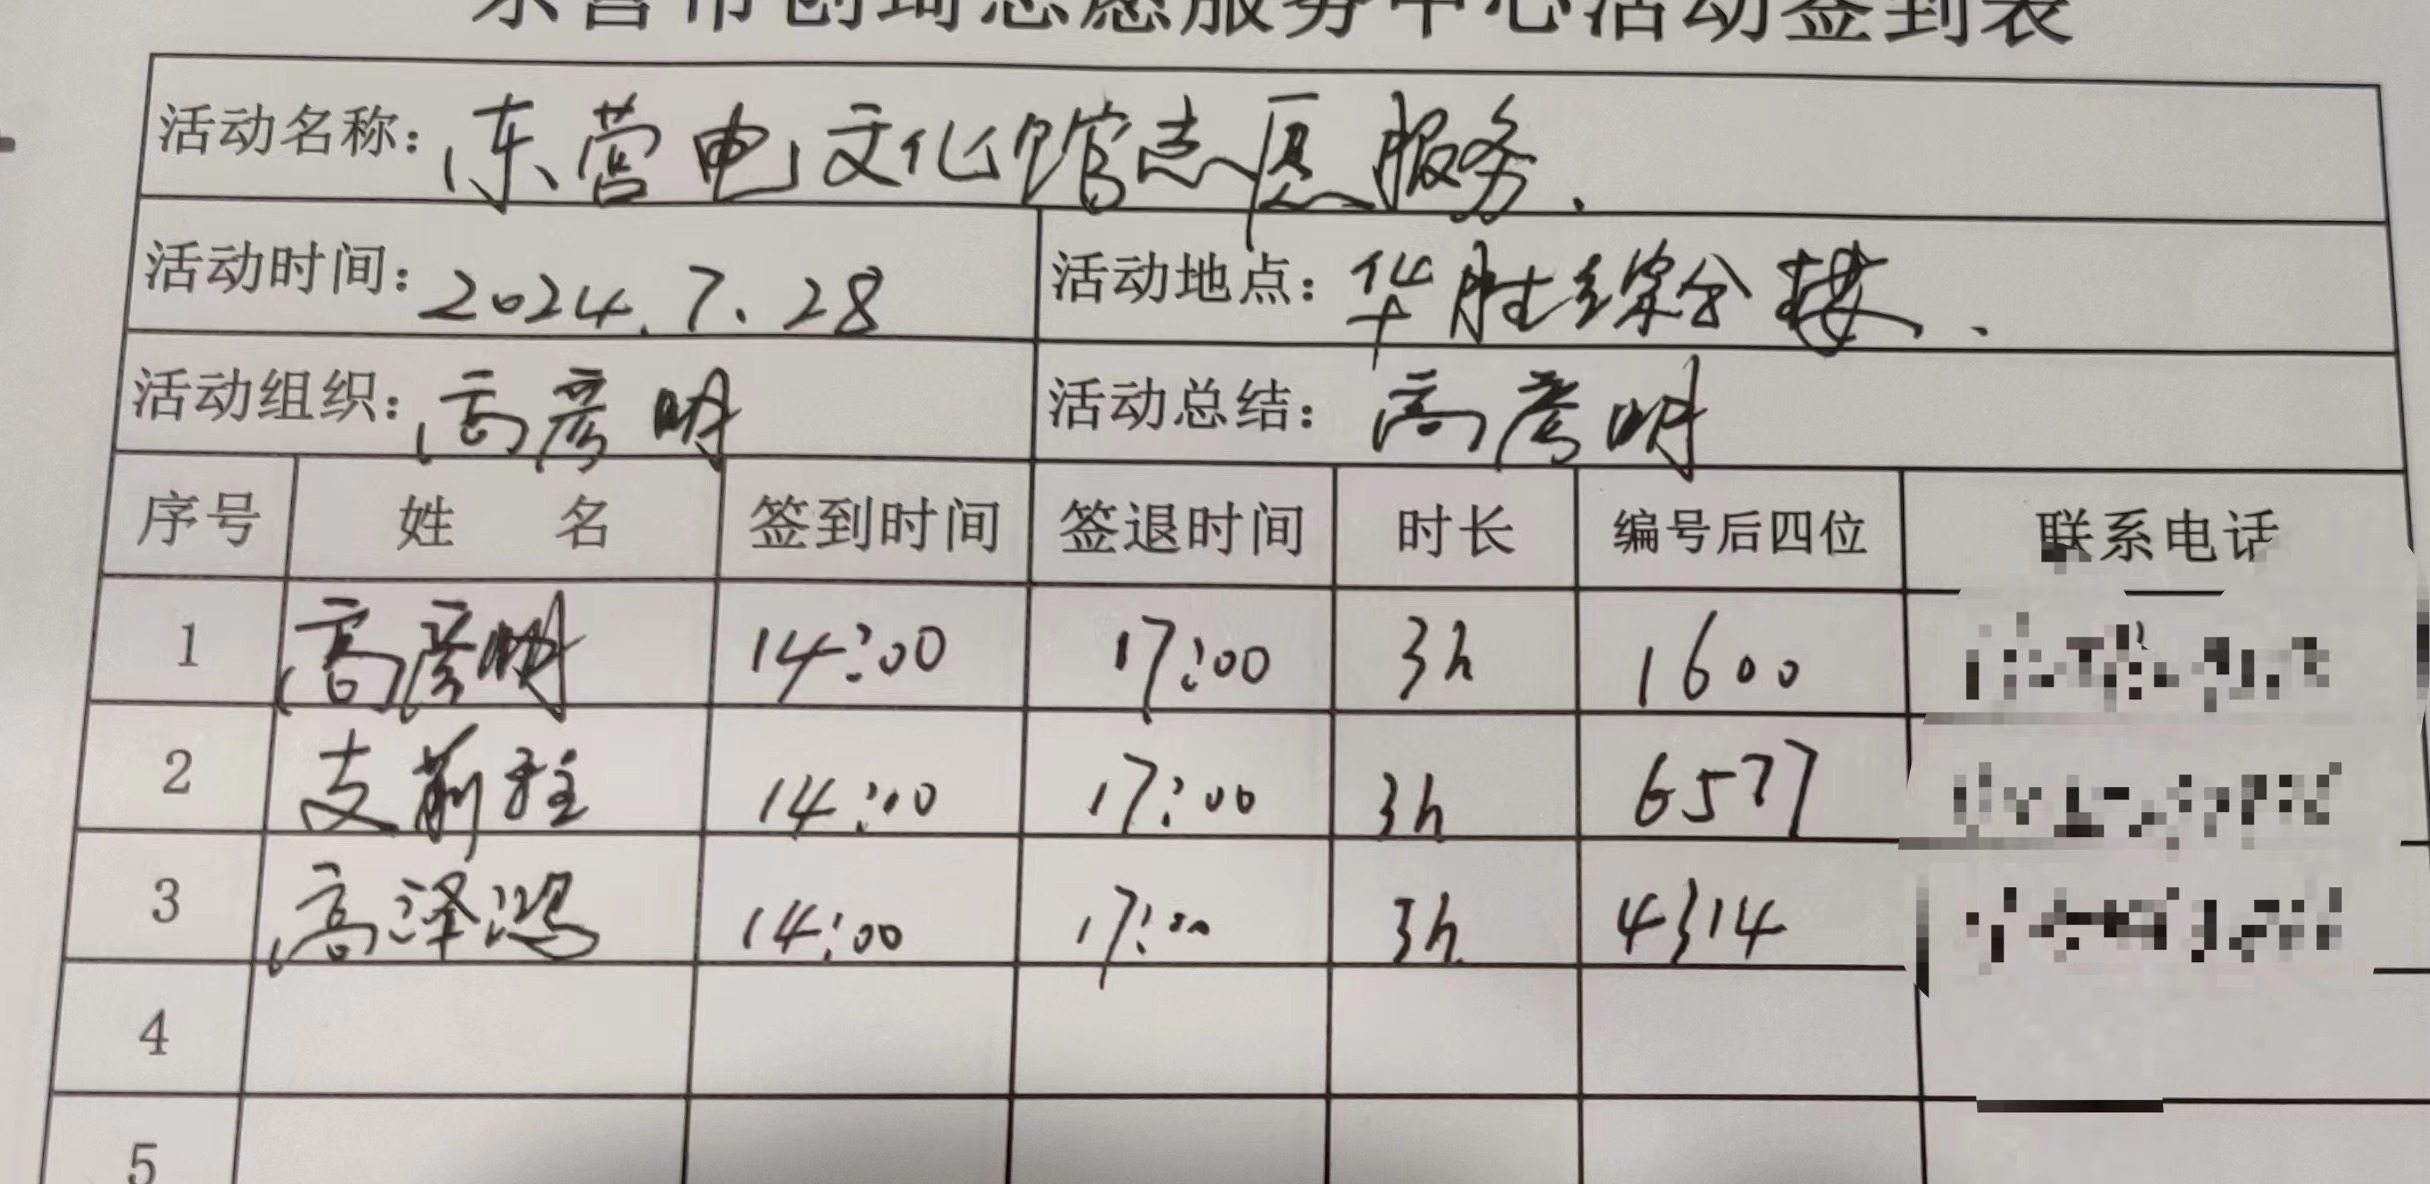 东营市创琦志愿服务中心活动签到表
活动名称：东营电文化馆志愿服务.
活动时间：2024.7.28 活动地点：华胜综合楼.
活动组织：高彦明 活动总结：高彦明
序号 姓名 签到时间 签退时间 时长 编号后四位 联系电话
1 高彦明 14:00 17:00 3h 1600
2 支 14:00 17:00 3h 6577
3 高泽鸿 14:00 17:00 3h 4314
4
5